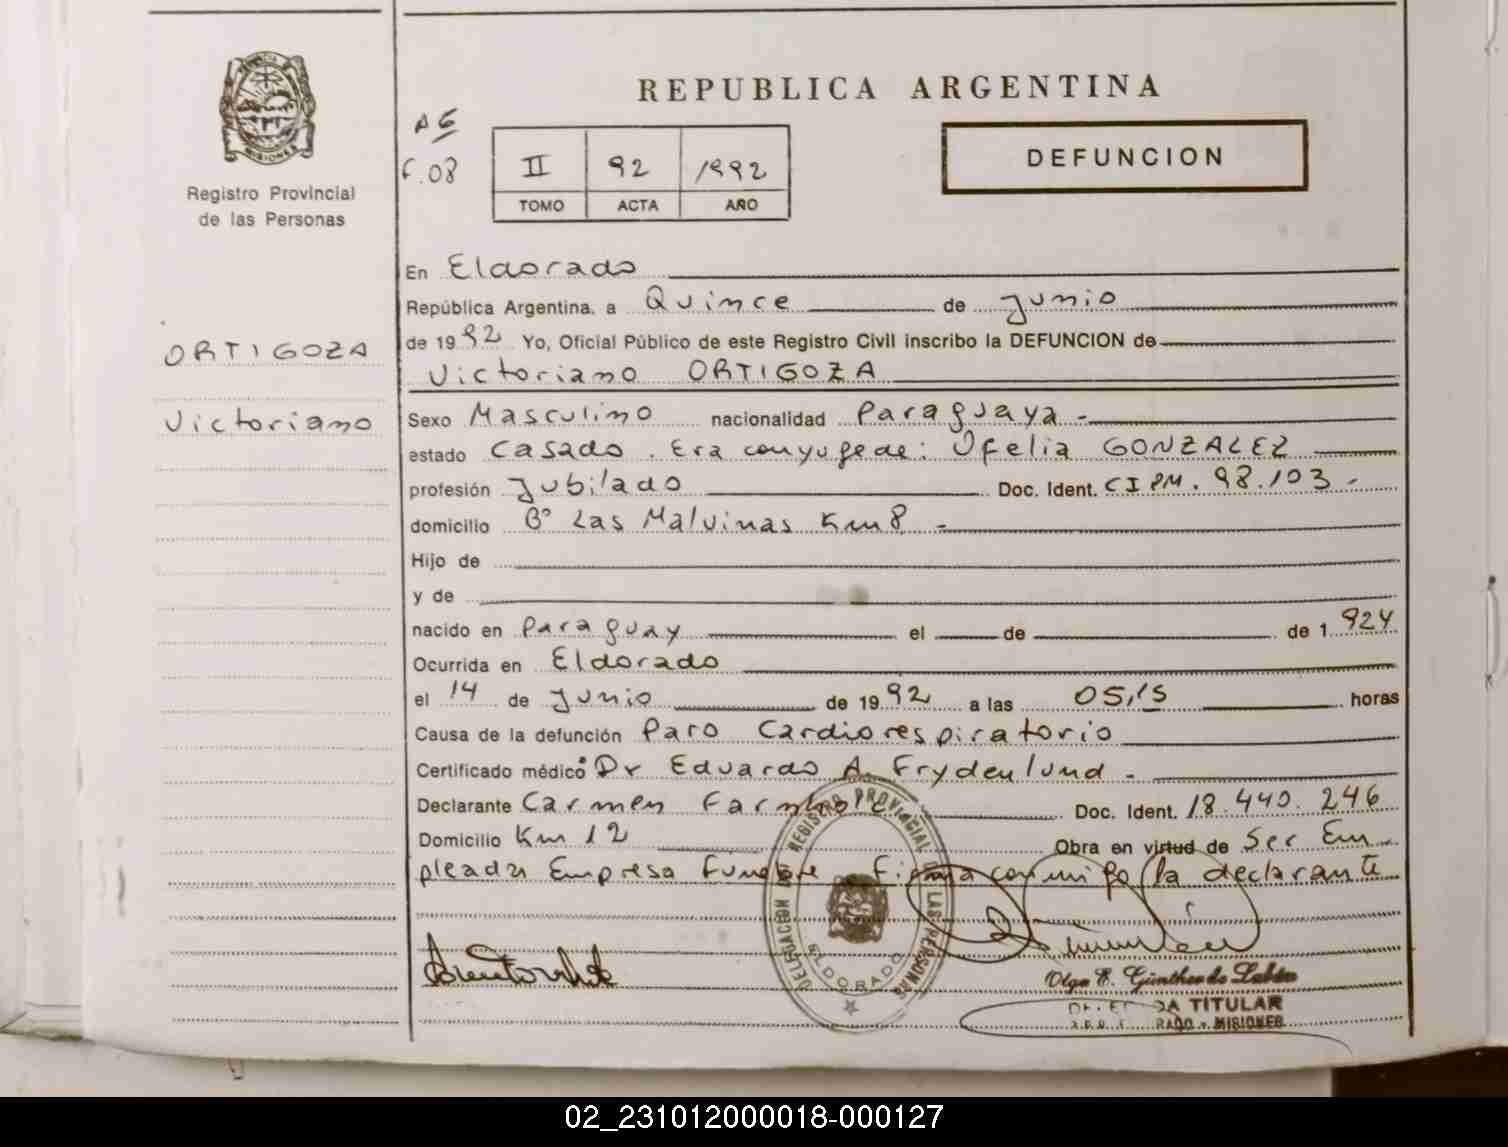 PROVINCIA DE
MISIONES
Registro Provincial
de las Personas
ORTIGOZA
Victoriano
REPUBLICA ARGENTINA
DEFUNCION
F.08
II 92 1992
TOMO ACTA AÑO
En Eldorado
República Argentina, a Quince de Junio
de 1992 Yo, Oficial Público de este Registro Civil inscribo la DEFUNCION de
Victoriano ORTIGOZA
Sexo Masculino nacionalidad Paraguaya -
estado Casado. Era conyuge de: Ofelia GONZALEZ
profesión Jubilado Doc. Ident. CI PM. 98.103 -
domicilio Bº Las Malvinas Km 8 -
Hijo de
y de
nacido en Paraguay el de de 1924
Ocurrida en Eldorado
el 14 de Junio de 1992 a las 05,15 horas
Causa de la defunción Paro Cardiorespiratorio
Certificado médico Dr Eduardo A. Frydenlund -
Declarante Carmen Doc. Ident. 18.440.246
Domicilio Km 12 Obra en virtud de Ser Em
pleada Empresa Funebre Firma conmigo la declarante
DELEGACION DEL REGISTRO PROVINCIAL DE LAS PERSONAS
ELDORADO
Olga E. Günther de Labán
TITULAR
MISIONES
02_231012000018-000127